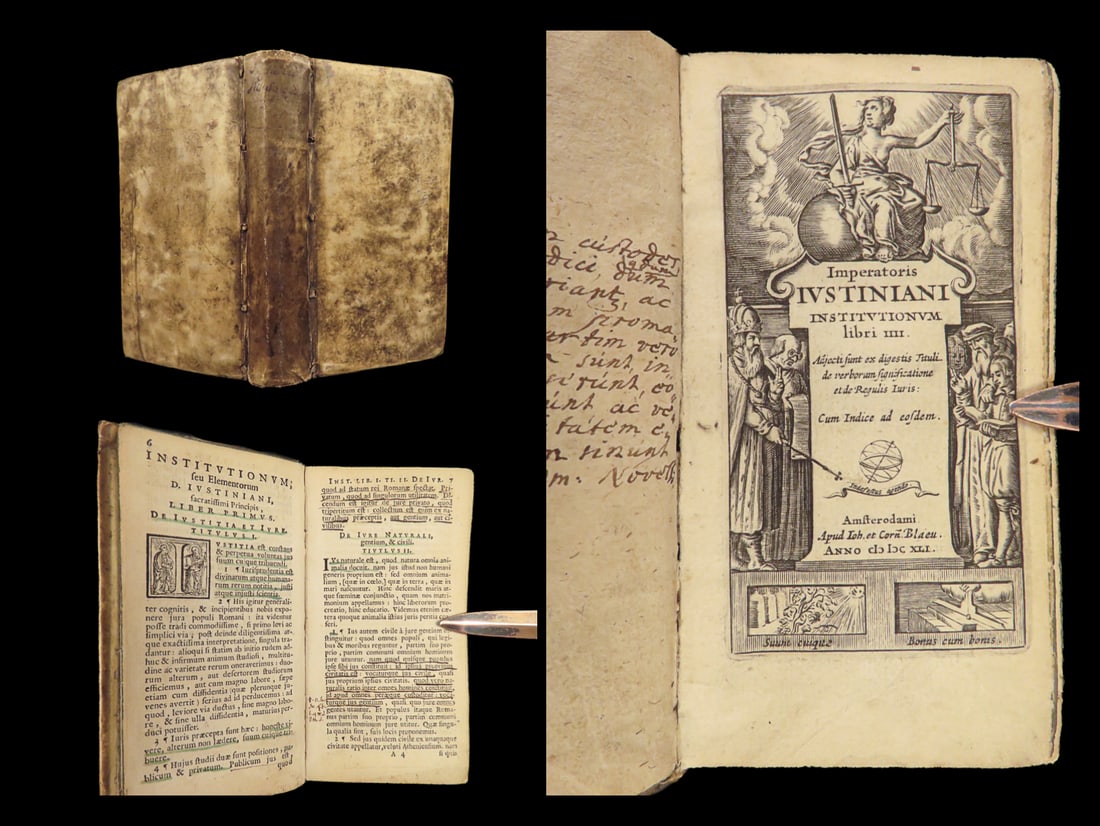 6
INSTITVTIONVM,
seu Elementorum
D. IVSTINIANI,
sacratissimi Principis,
LIBER PRIMUS.
DE IVSTITIA ET IVRE.
TITVLVS I.
IVSTITIA est constans
& perpetua voluntas jus
suum cuique tribuendi.
1 ¶ Iurisprudentia est
divinarum atque humana-
rum rerum notitia, justi
atque injusti scientia.
2 ¶ His igitur generali-
ter cognitis, & incipientibus nobis expo-
nere jura populi Romani: ita videntur
posse tradi commodissime, si primo levi ac
simplici via; post deinde diligentissima at-
que exactissima interpretatione, singula tra-
dantur: alioqui si statim ab initio rudem ad-
huc & infirmum animum studiosi, multitu-
dine ac varietate rerum oneraverimus: duo-
rum alterum, aut desertorem studiorum
efficiemus, aut cum magno labore, sæpe
etiam cum diffidentia (quæ plerunque ju-
venes avertit) serius ad id perducemus: ad
quod, leviore via ductus, sine magno labo-
re, & sine ulla diffidentia, maturius per-
duci potuisset.
3 ¶ Iuris præcepta sunt hæc: honeste vi-
vere, alterum non lædere, suum cuique tri-
buere.
4 ¶ Hujus studii duæ sunt positiones, pu-
blicum & privatum. Publicum jus est,
quod
INST. LIB. I. TI. II. DE IVR. 7
quod ad statum rei Romanæ spectat. Pri-
vatum, quod ad singulorum utilitatem. Di-
cendum est igitur de jure privato, quod
tripertitum est: collectum est enim ex na-
turalibus præceptis, aut gentium, aut ci-
vilibus.
DE IVRE NATVRALI,
gentium, & civili.
TITVLVS II.
IVs naturale est, quod natura omnia ani-
malia docuit. nam jus istud non humani
generis proprium est: sed omnium anima-
lium, [quæ in cœlo,] quæ in terra, quæ in
mari nascuntur. Hinc descendit maris at-
que fœminæ conjunctio, quam nos matri-
monium appellamus: hinc liberorum pro-
creatio, hinc educatio. Videmus etenim cæ-
tera quoque animalia istius juris peritia cen-
seri.
1 ¶ Ius autem civile à jure gentium di-
stinguitur: quod omnes populi, qui legi-
bus & moribus reguntur, partim suo pro-
prio, partim communi omnium hominum
jure utuntur. nam quod quisque populus
ipse sibi jus constituit: id ipsius proprium
civitatis est: vocaturque jus civile, quasi
jus proprium ipsius civitatis. quod vero na-
turalis ratio inter omnes homines constituit,
id apud omnes peræque custoditur: voca-
turque jus gentium, quasi quo jure omnes
gentes utantur. Et populus itaque Roma-
nus partim suo proprio, partim communi
omnium hominum jure utitur. Quæ singu-
la qualia sint, suis locis proponemus.
2 ¶ Sed jus quidem civile ex unaquaque
civitate appellatur, veluti Atheniensium. nam
A 4 si quis
custodes
dici, dum
riant, ac
m proma
artim vero
sunt, in
serunt, eo
unt ac ve
tatem e
n sinunt
m: Novell.
Imperatoris
IVSTINIANI
INSTITVTIONVM
libri IIII.
Adjecti sunt ex digestis Tituli.
de verborum significatione
et de Regulis Iuris:
Cum Indice ad eosdem.
Indefessus agendo
Amsterodami
Apud Ioh. et Corn. Blaeu.
ANNO CIↃ IↃC XLI.
Suum cuique
Bonus cum bonis.